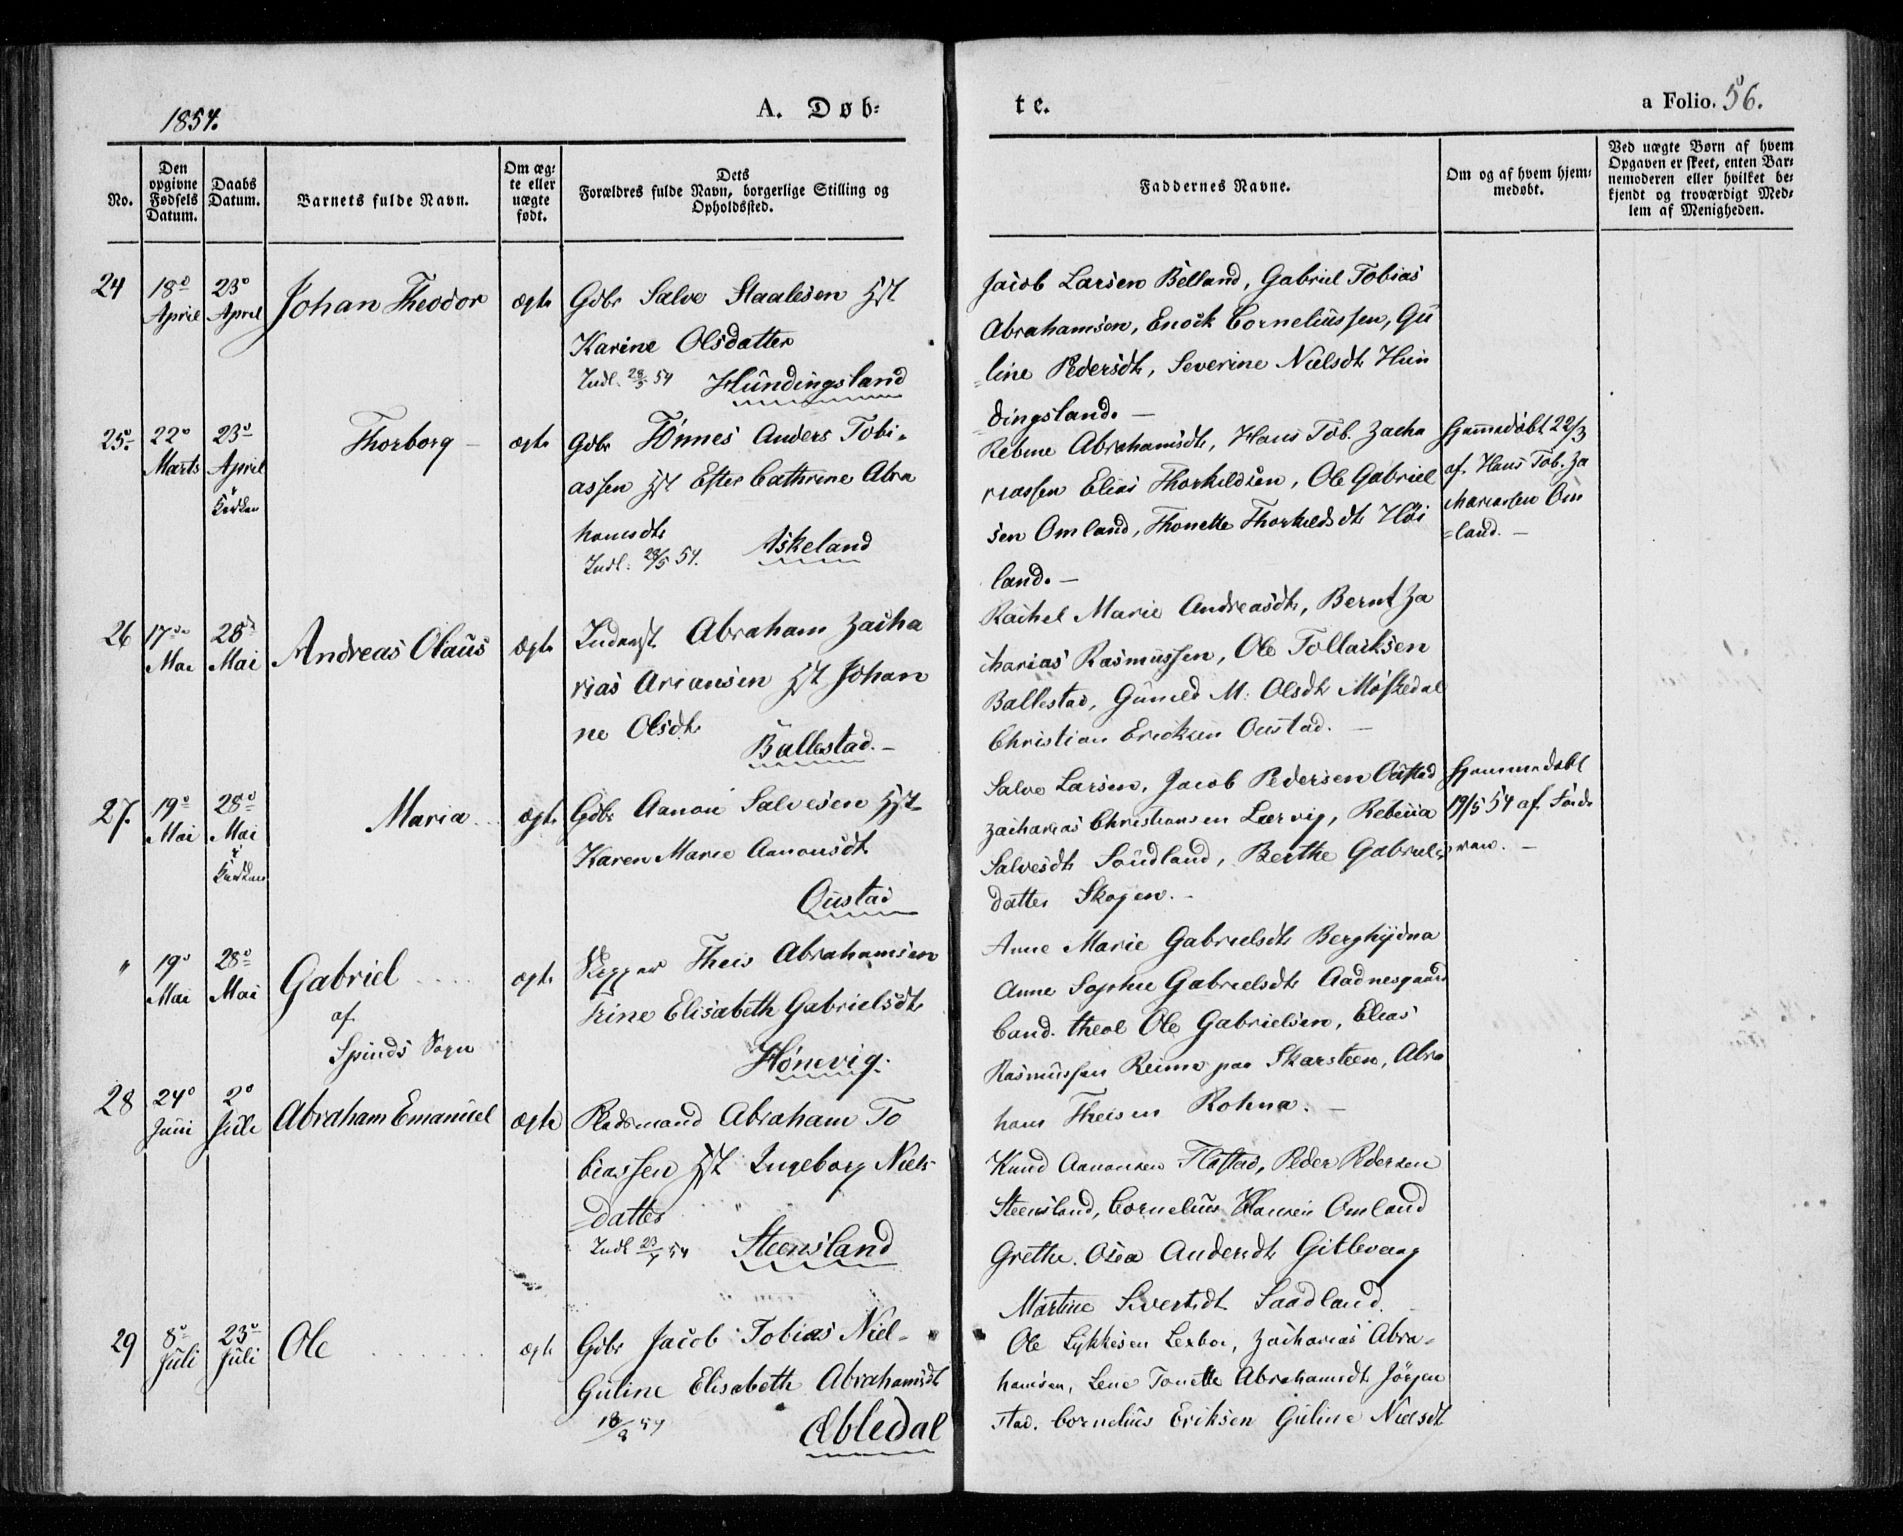 1854.
A. Døb-
te.
a Folio. 56.
No.
Den opgivne Fødsels Datum.
Daabs Datum.
Barnets fulde Navn.
Om ægte eller uægte født.
Dets Forældres fulde Navn, borgerlige Stilling og Opholdssted.
Faddernes Navne.
Om og af hvem hjemmedøbt.
Ved uægte Børn af hvem Opgaven er skeet, enten Barnemoderen eller hvilket bekjendt og troværdigt Medlem af Menigheden.
24 18de April 23de April Johan Theodor ægte Gdbr Salve Staalesen Hst
Karine Olsdatter
Indl. 28/5 54 Hundingsland
Jacob Larsen Belland, Gabriel Tobias
Abrahamsen, Enock Corneliussen, Gu
line Pedersdt, Severine Nielsdt Hun
dingsland. —
25 22 Marts 23 April i Kirken Thorborg ægte Gdbr Tönnes Anders Tobi-
assen Hst Ester Cathrine Abra
hamsdt
Indl. 28/5 54. Askeland
Rebine Abrahamsdt, Hans Tob. Zacha
riassen Elias Thorkildsen, Ole Gabriel
sen Omland, Thonette Thorkildsdt Höi
land. —
Hjemmedøbt 22/3
af Hans Tob. Za
chariassen Om
land. —
26 17de Mai 28de Mai Andreas Olaus ægte Inderst Abraham Zacha
rias Ariansen Hst Johan
ne Olsdt
Ballestad. —
Rachel Marie Andreasdt, Bernt Za
charias Rasmussen, Ole Tollacksen
Ballestad, Guneld M. Olsdt Möskedal
Christian Ericksen Oustad. —
27. 19 Mai 28 Mai i Kirken Maria ægte Gdbr Aanon Salvesen Hst
Karen Marie Aanonsdt
Oustad
Salve Larsen, Jacob Pedersen Oustad
Zacharias Christiansen Lervig, Rebecca
Salvesdt Söudland, Berthe Gabriels
datter Skogen. —
Hjemmedøbt
19/5 54 af Forde
ren. —
" 19 Mai 28 Mai Gabriel
af
Spinds Sogn ægte Skipper Theis Abrahamsen
Trine Elisabeth Gabrielsdt
Hönevig.
Anne Marie Gabrielsdt
Anne Sophie Gabrielsdt Aadnesgaard
Cand. theol Ole Gabrielsen, Elias
Rasmussen Reime paa Skarsteen, Abra
ham Theisen Rohna. —
28 24 Juni 2 Juli Abraham Emanuel ægte Pladsmand Abraham To
biassen Hst Ingeborg Niels
datter
Indl 23/7 54 Steensland
Knud Aanonsen Flastad, Peder Pedersen
Steensland, Cornelius Hansen Omland
Grethe Osea Andersdt Gitlevaag
Martine Sivertsdt Saadland.
29 8 Juli 23 Juli Ole ægte Gdbr Jacob Tobias Niel-
Guline Elisabeth Abrahamsdt
18/8 54 Æbledal
Ole Lykkesen Lerbo, Zacharias Abra-
hamsen, Lene Tonette Abrahamsdt Jörgen
stad. Cornelius Eriksen Guline Nielsdt